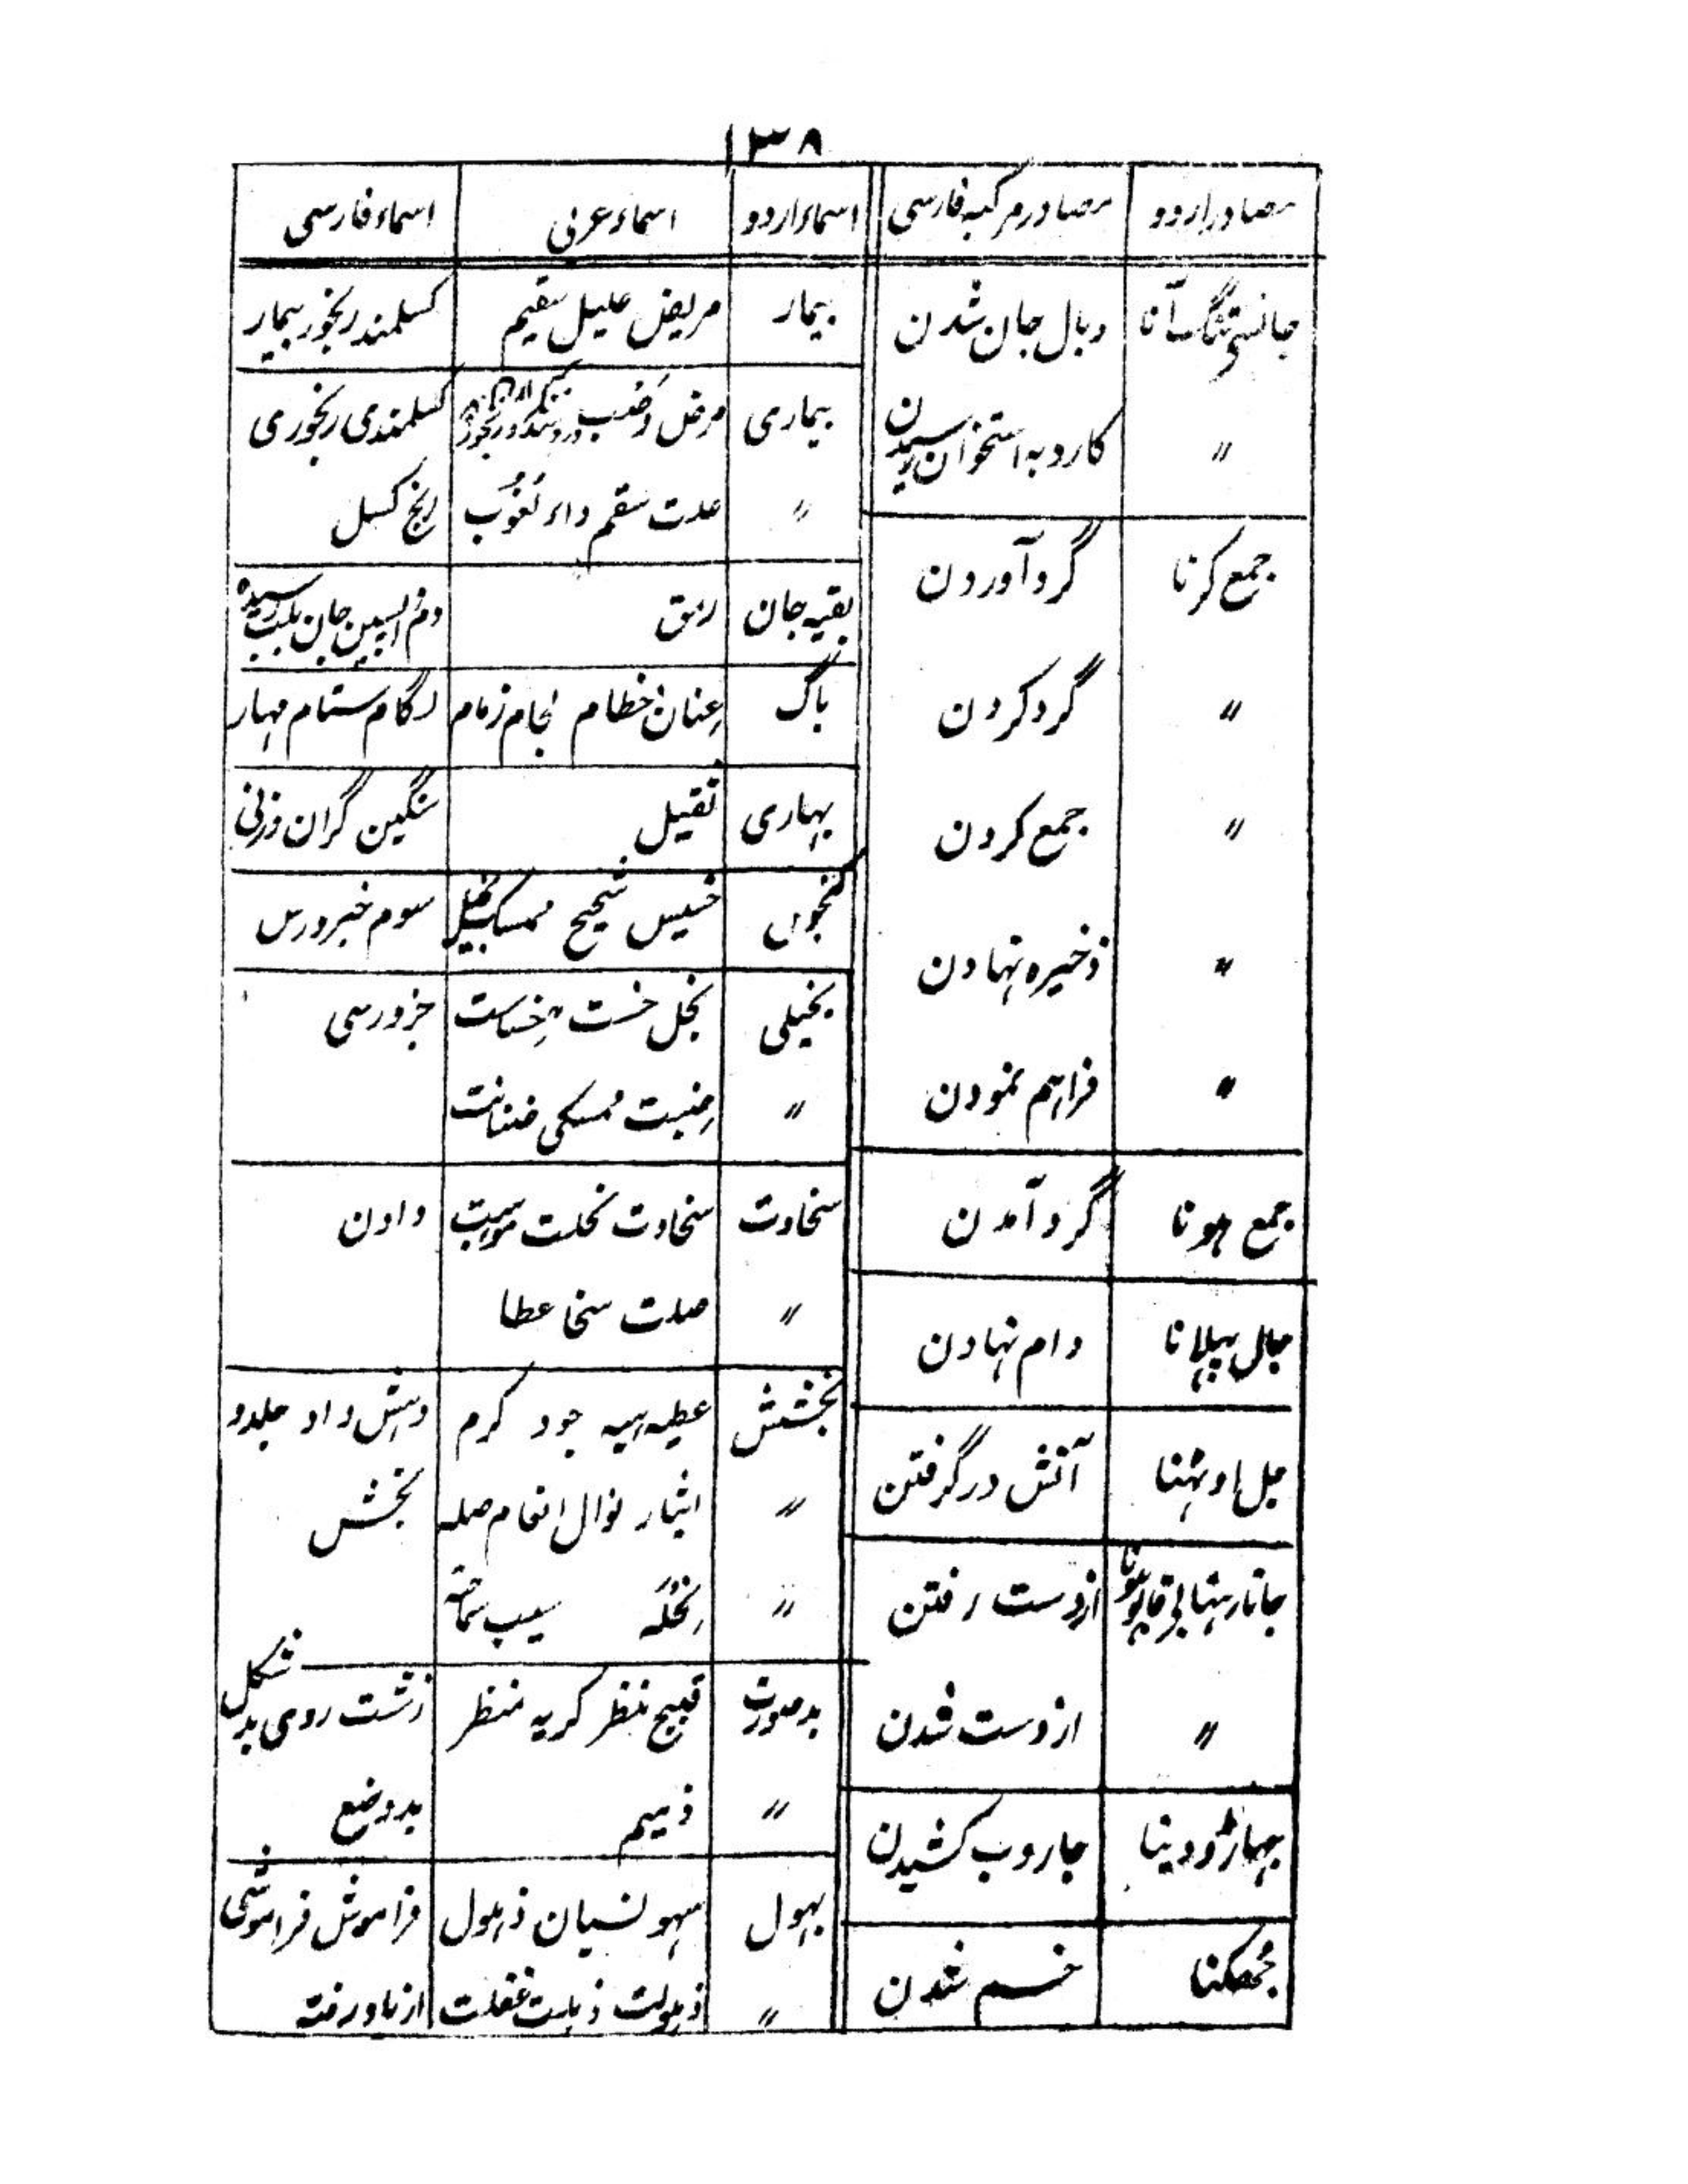 ۱۳۸
مصادر اردو | مصادر مرکبه فارسی | اسماء اردو | اسماء عربی | اسماء فارسی
جانسے تنگ آنا | وبال جان شدن
〃 | کارد به استخوان رسیدن
جمع کرنا | گرد آوردن
〃 | گرد کردن
〃 | جمع کردن
〃 | ذخیره نهادن
〃 | فراهم نمودن
جمع هونا | گرد آمدن
جال پهیلانا | دام نهادن
جل اوٹهنا | آتش در گرفتن
جاتا رهنا بی قابو هونا | از دست رفتن
〃 | از دست شدن
جهاڑو دینا | جاروب کشیدن
جُهکنا | خم شدن
بیمار | مریض علیل سقیم | کسلمند رنجور بیمار
بیماری | مرض وَصَب | کسلمندی رنجوری
〃 | علت سقم داء لُغُوب | رنج کسل
بقیه جان | رمق | دم واپسین جان بلب رسیده
باگ | عِنان خطام لجام زمام | لگام ستام مهار
بهاری | ثقیل | سنگین گران وزنی
کنجوس | خسیس شحیح ممسک بخیل | سوم خبر ورس
بخیلی | بخل خست خِساست | جزورسی
〃 | ضِنّت ممسکی ضنانت
سخاوت | سخاوت نحلت موهبت | دادن
〃 | صلت سخا عطا
بخشش | عطیه هبه جود کرم | دهش داد جلدو
〃 | ایثار نوال انعام صله | بخش
〃 | نِحْلَه سیب سماحة
بدصورت | قبیح منظر کریه منظر | زشت روی بد شکل
〃 | ذمیم | بدوضع
بهول | سهو نسیان ذهول | فراموش فراموشی
〃 | ذهولت ذهلت غفلت | از یاد رفته